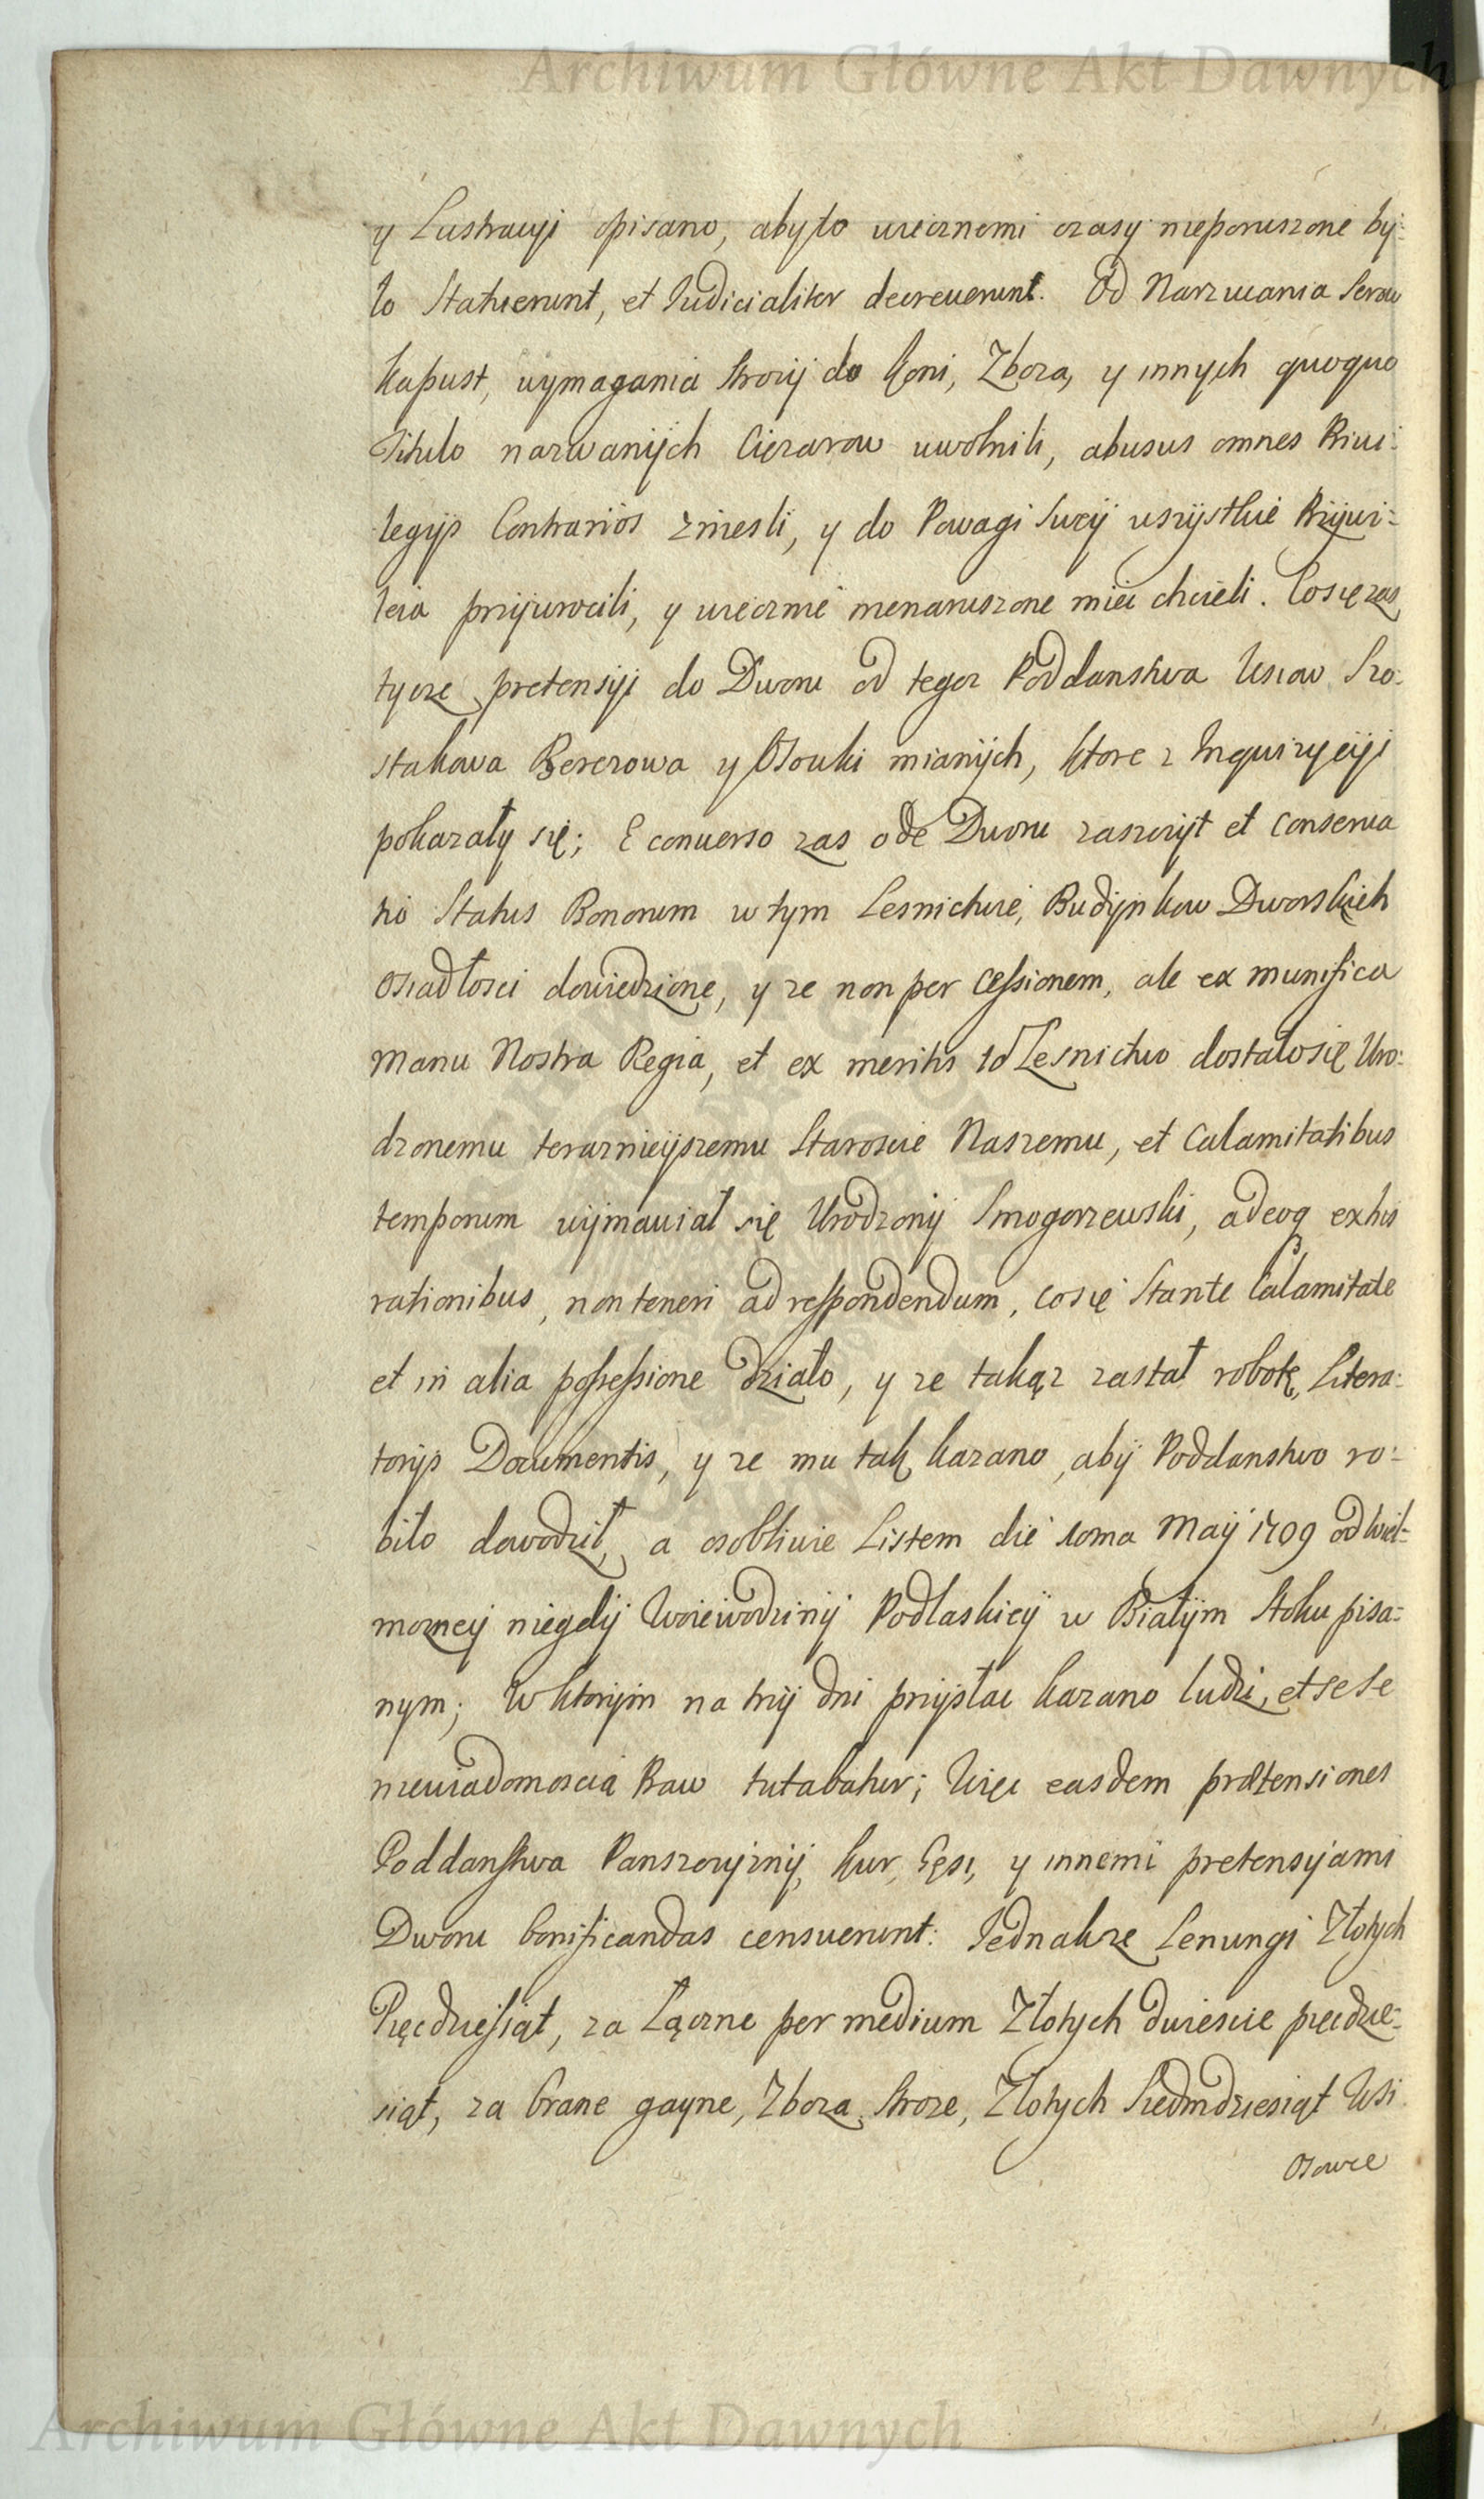 Archiwum Główne Akt Dawnych
y Lustracyi opisano, aby to wiecznemi czasy nieporuszone by:
ło Statuerunt, et Judicialiter decreverunt. Od Narzucania Serow
Kapust, wymagania Strozy do Koni, Zboza, y innych quoquo
Titulo nazwanych Cięzarow uwolnili, abusus omnes Privi:
legijs Contrarios zniesli, y do Powagi Swey wszystkie Przywi:
leia przywrocili, y wiecznie nienaruszone miec chcieli. Co się zas
tycze pretensyi do Dworu od tegoz Poddanstwa Wsiow Szo:
stakowa Berezowa y Osowki mianych, ktore z Inquizycyi
pokazały się; E converso zas ode Dworu zaszczyt et conserva
tio Status Bonorum w tym Lesnictwie, Budynkow Dworskich
Osiadłosci dowiedzione, y ze non per Cessionem, ale ex munifica
manu Nostra Regia, et ex meritis to Lesnictwo dostało się Uro:
dzonemu teraznieyszemu Staroscie Naszemu, et Calamitatibus
temporum wymawiał się Urodzony Smogorzewski, adeoq3 ex his
rationibus, non teneri ad respondendum, co się Stante Calamitate
et in alia possessione działo, y ze takąz zastał robotę, Litera:
torijs Documentis, y ze mu tak kazano, aby Poddanstwo ro:
biło dowodził, a osobliwie Listem die 10ma Maij 1709 od Wiel:
mozney niegdy Woiewodziny Podlaskiey w Białym Stoku pisa:
nym; W ktorym na trzy dni przysłac kazano ludzi, et se se
niewiadomoscią Praw tutabatur; Więc easdem prætensiones
Poddanstwa Panszczyzny, Kur, Gęsi, y innemi pretensyami
Dworu bonificandas censuerunt: Jednakze Lenungi Złotych
Pięcdziesiąt, za Łączne per medium Złotych dwiescie pięcdzie:
siąt, za brane gayne, Zboza, Stroze, Złotych Siedmdziesiąt Wsi
Osowce
Archiwum Główne Akt Dawnych